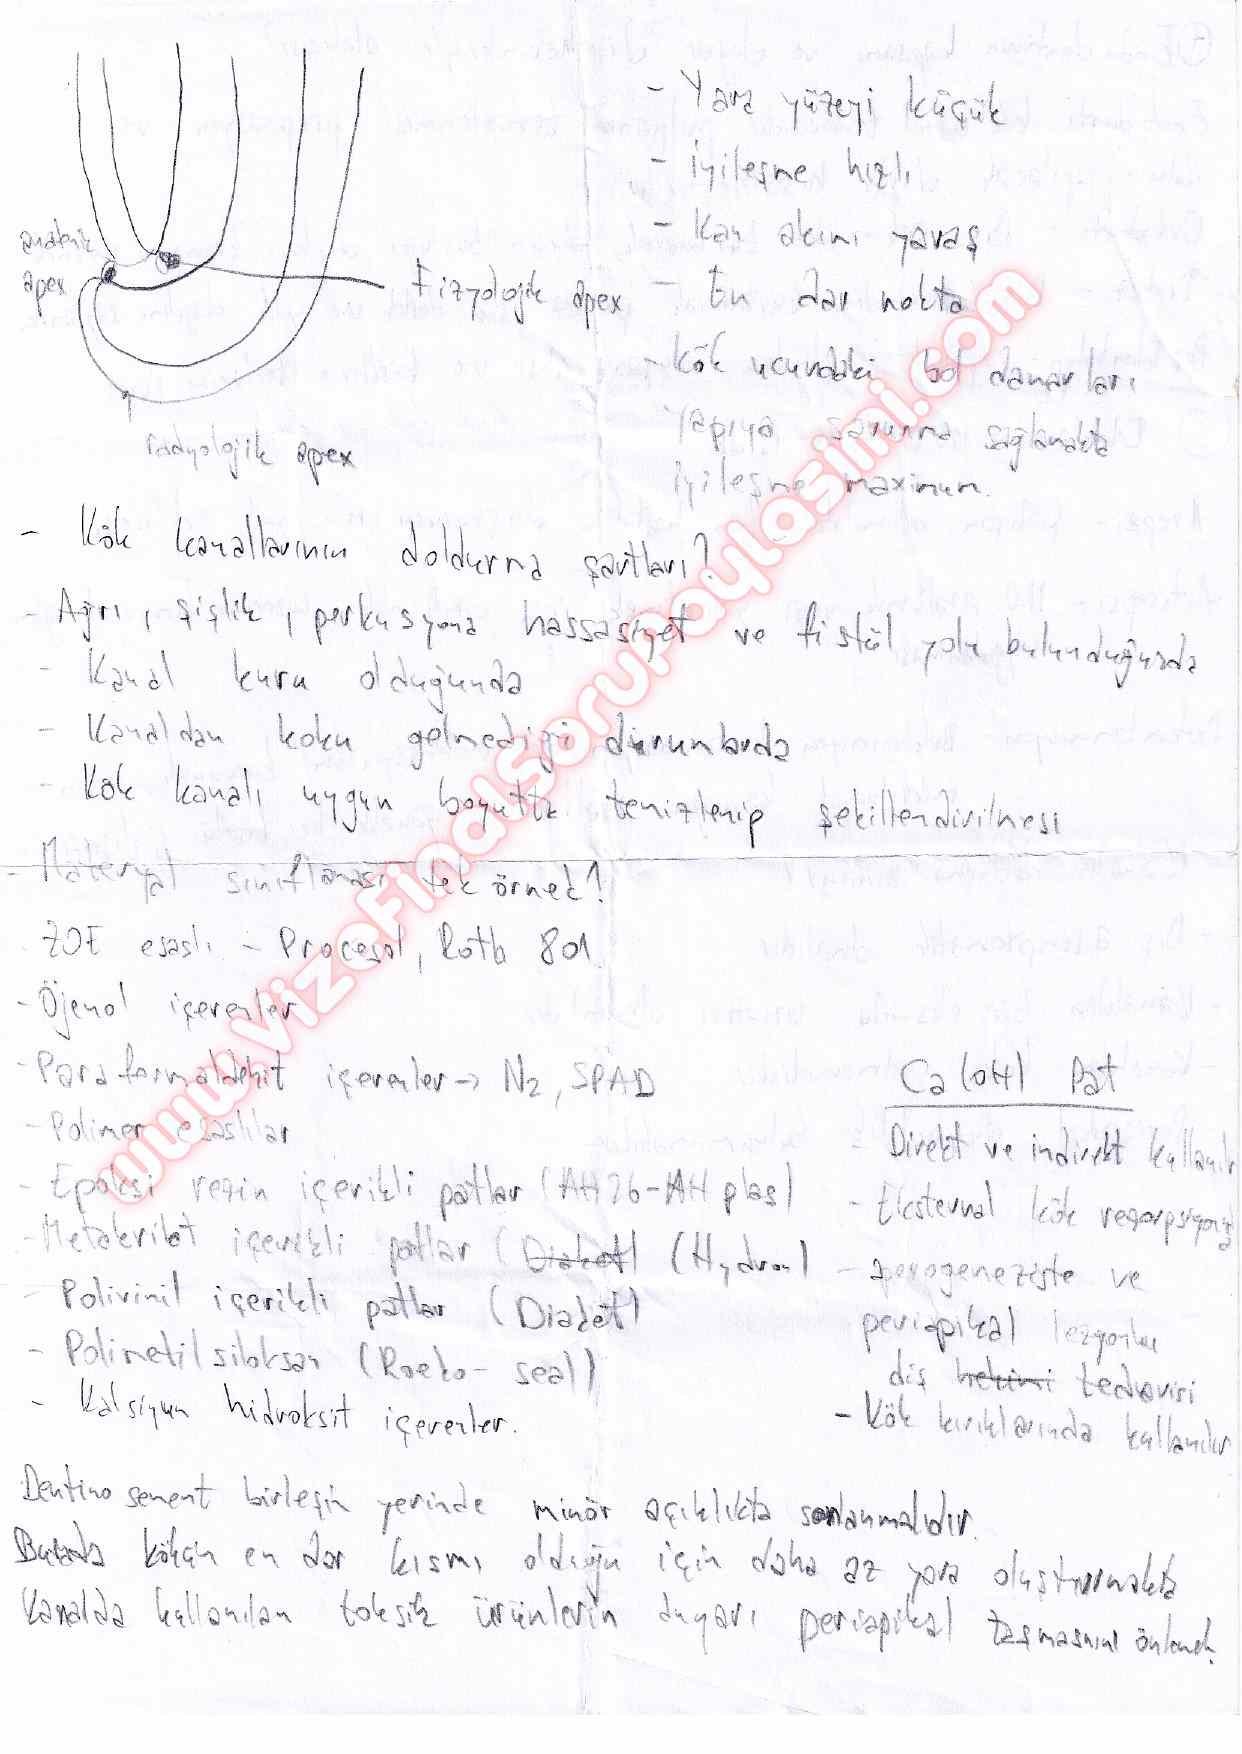 - Yara yüzeyi küçük
- İyileşme hızlı
- Kan akımı yavaş
- En dar nokta
- Kök ucundaki bol damarları
yapıya savunma sağlamakta
iyileşme maximum.
anatomik
apex
Fizyolojik apex
radyolojik apex
- Kök kanallarının doldurma şartları?
- Ağrı, şişlik, perkusyona hassasiyet ve fistül yolu bulunduğunda
- Kanal kuru olduğunda
- Kanaldan koku gelmediği durumlarda
- Kök kanalı uygun boyutta temizlenip şekillendirilmesi
- Materyal sınıflaması tek örnek?
ZOE esaslı - Procosol, Roth 801
- Öjenol içerenler
- Paraformaldehit içerenler → N2, SPAD
- Polimer esaslılar
- Epoksi rezin içerikli patlar (AH26-AH plas)
- Metakrilat içerikli patlar (Diaket) (Hydron)
- Polivinil içerikli patlar (Diaket)
- Polimetilsiloksan (Roeko-seal)
- Kalsiyum hidroksit içerenler.
Ca(OH) Pat
Direkt ve indirekt kullanılır
- Eksternal kök rezorpsiyonu
- apexogeneziste ve
periapikal lezyonlu
diş hekimi tedavisi
- Kök kırıklarında kullanılır
Dentino sement birleşim yerinde minör açıklıkta sonlanmalıdır.
Burada kökün en dar kısmı olduğu için daha az yara oluşturmakta
Kanalda kullanılan toksik ürünlerin dışarı periapikal taşmasını önlemek.
www.VizeFinalSoruPaylasimi.com